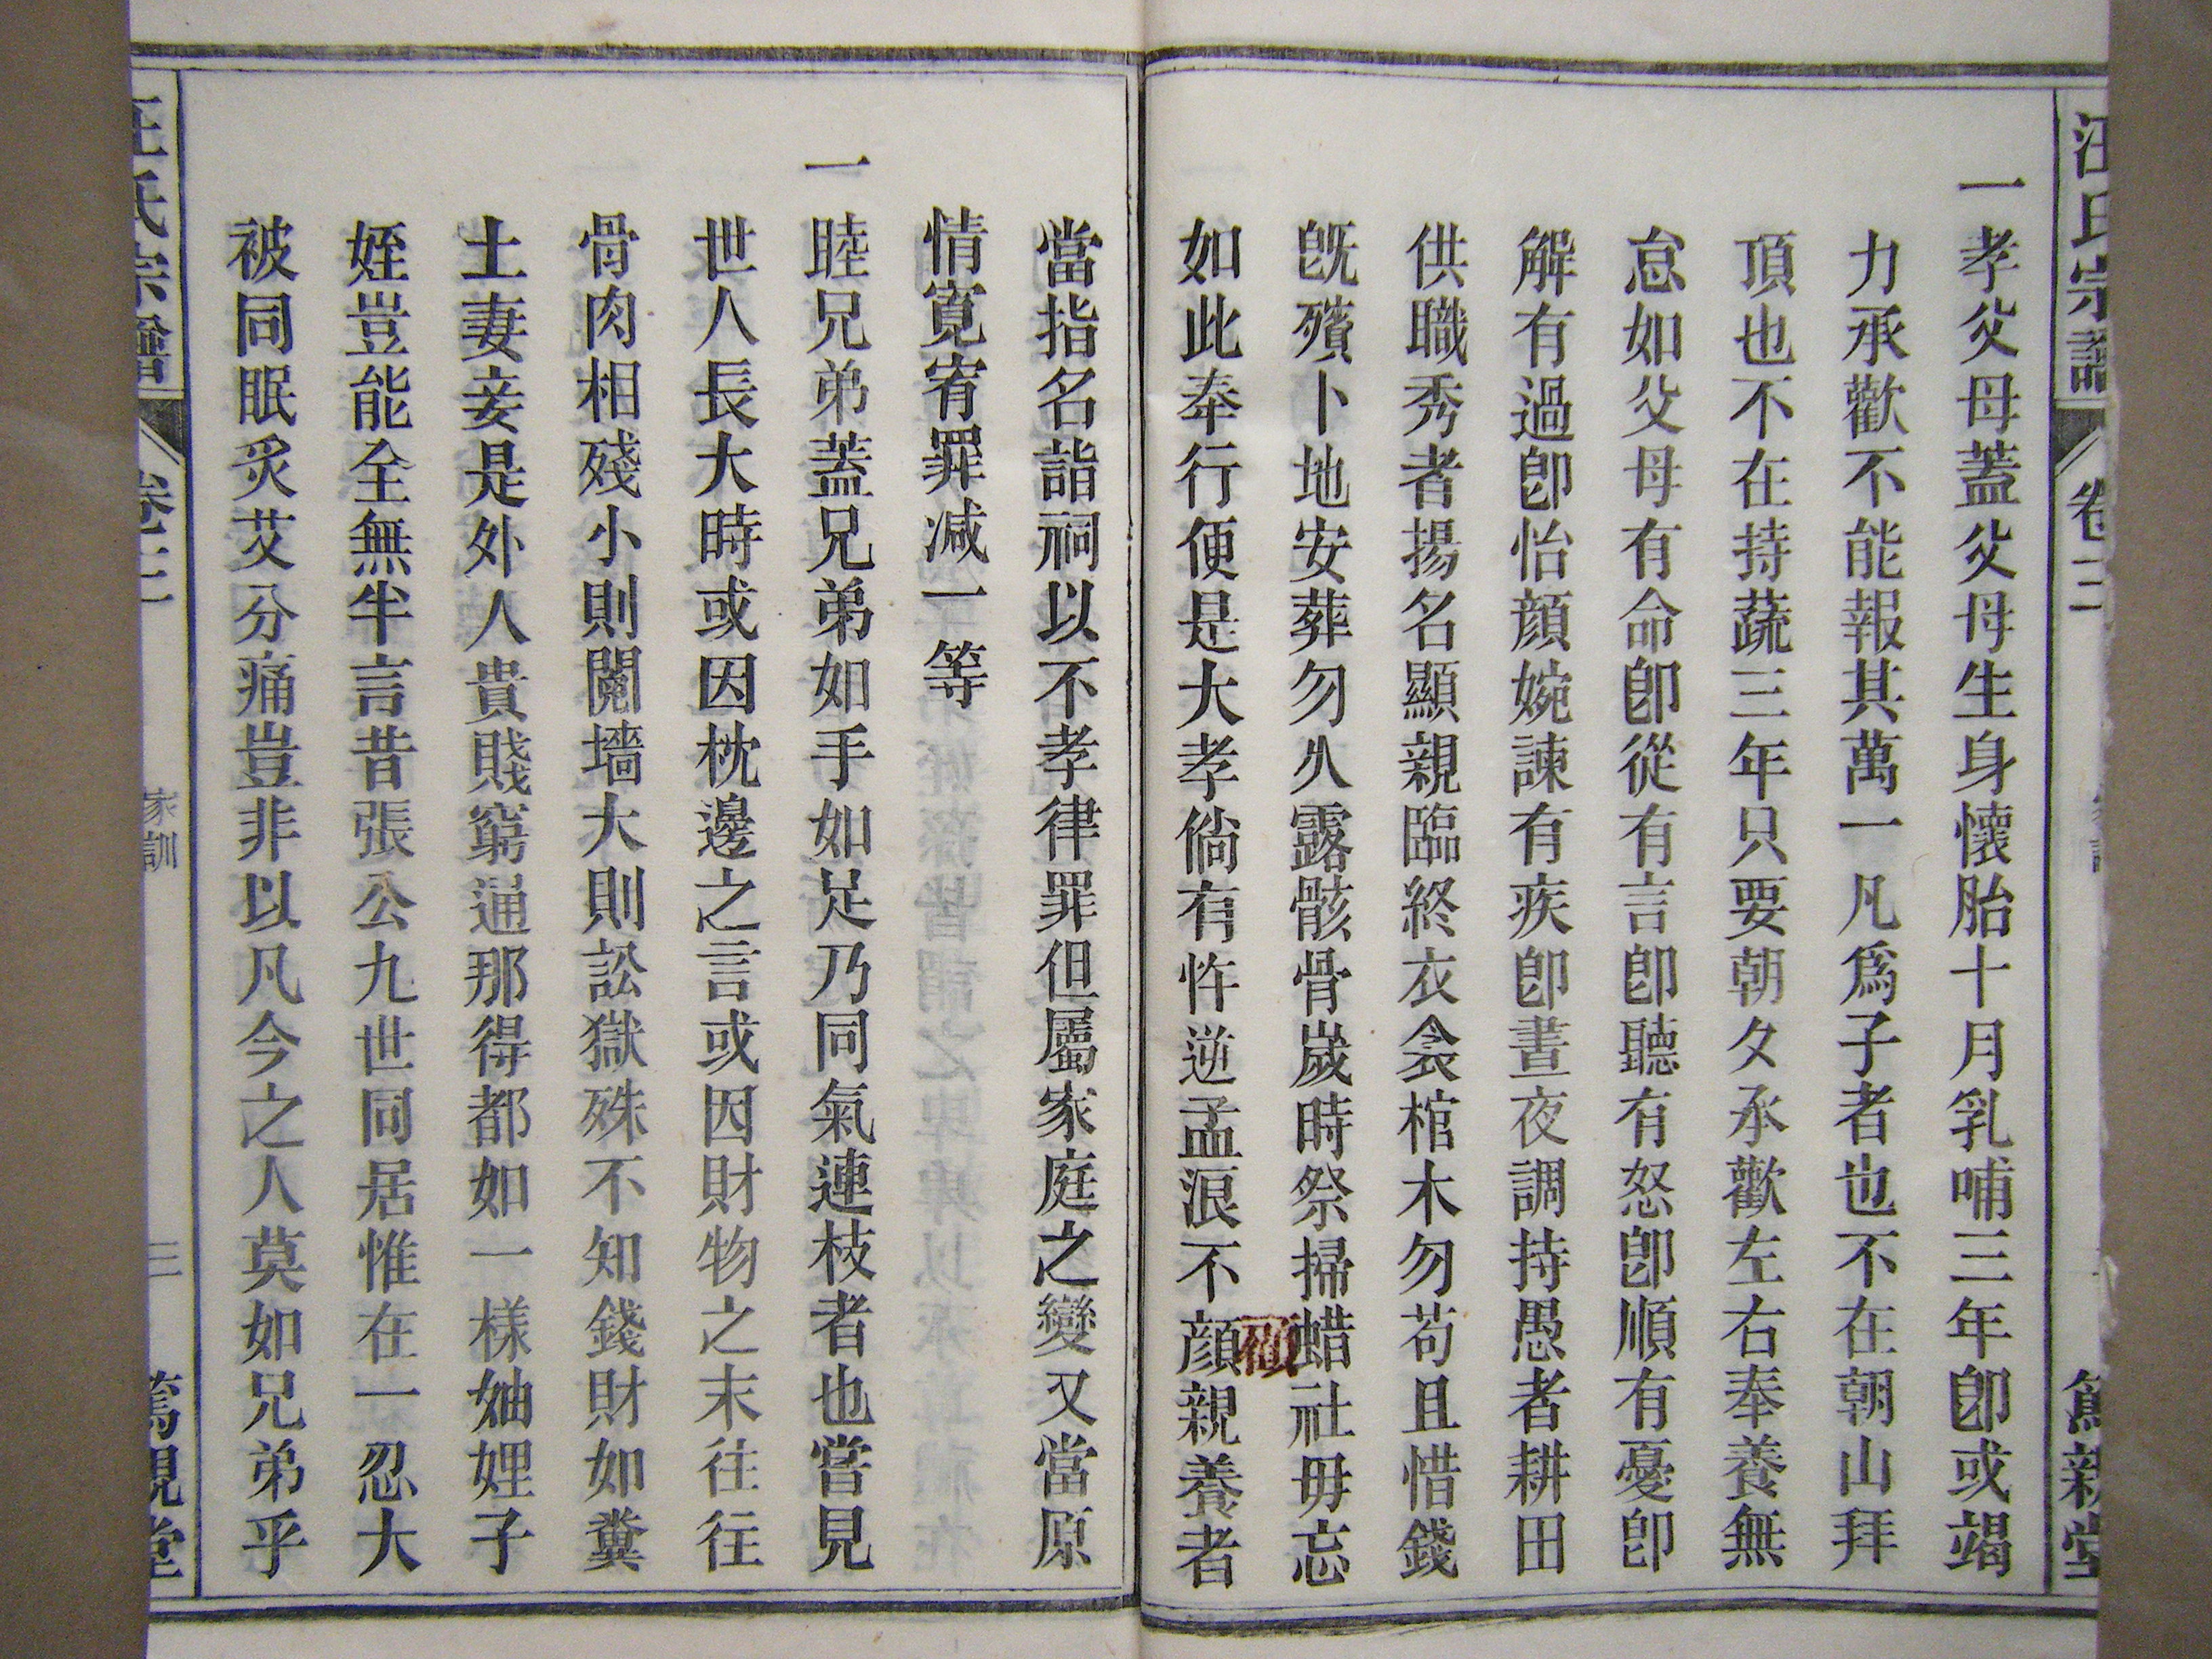 汪氏宗譜 卷三 篤親堂
一孝父母蓋父母生身懷胎十月乳哺三年卽或竭
力承歡不能報其萬一凡爲子者也不在朝山拜
頂也不在持蔬三年只要朝夕承歡左右奉養無
怠如父母有命卽從有言卽聽有怒卽順有憂卽
解有過卽怡顔婉諫有疾卽晝夜調持愚者耕田
供職秀者揚名顯親臨終衣衾棺木勿苟且惜錢
旣殯卜地安葬勿久露骸骨嵗時祭掃蜡社毋忘
如此奉行便是大孝倘有忤逆孟浪不顔親養者
顧
當指名詣祠以不孝律罪但屬家庭之變又當原
情寛宥罪減一等
一睦兄弟蓋兄弟如手如足乃同氣連枝者也嘗見
世人長大時或因枕邊之言或因財物之末往往
骨肉相殘小則鬩墻大則訟獄殊不知錢財如糞
土妻妾是外人貴賤窮通那得都如一樣妯娌子
姪豈能全無半言昔張公九世同居惟在一忍大
被同眠炙艾分痛豈非以凡今之人莫如兄弟乎
汪氏宗譜 卷三 家訓 三 篤親堂